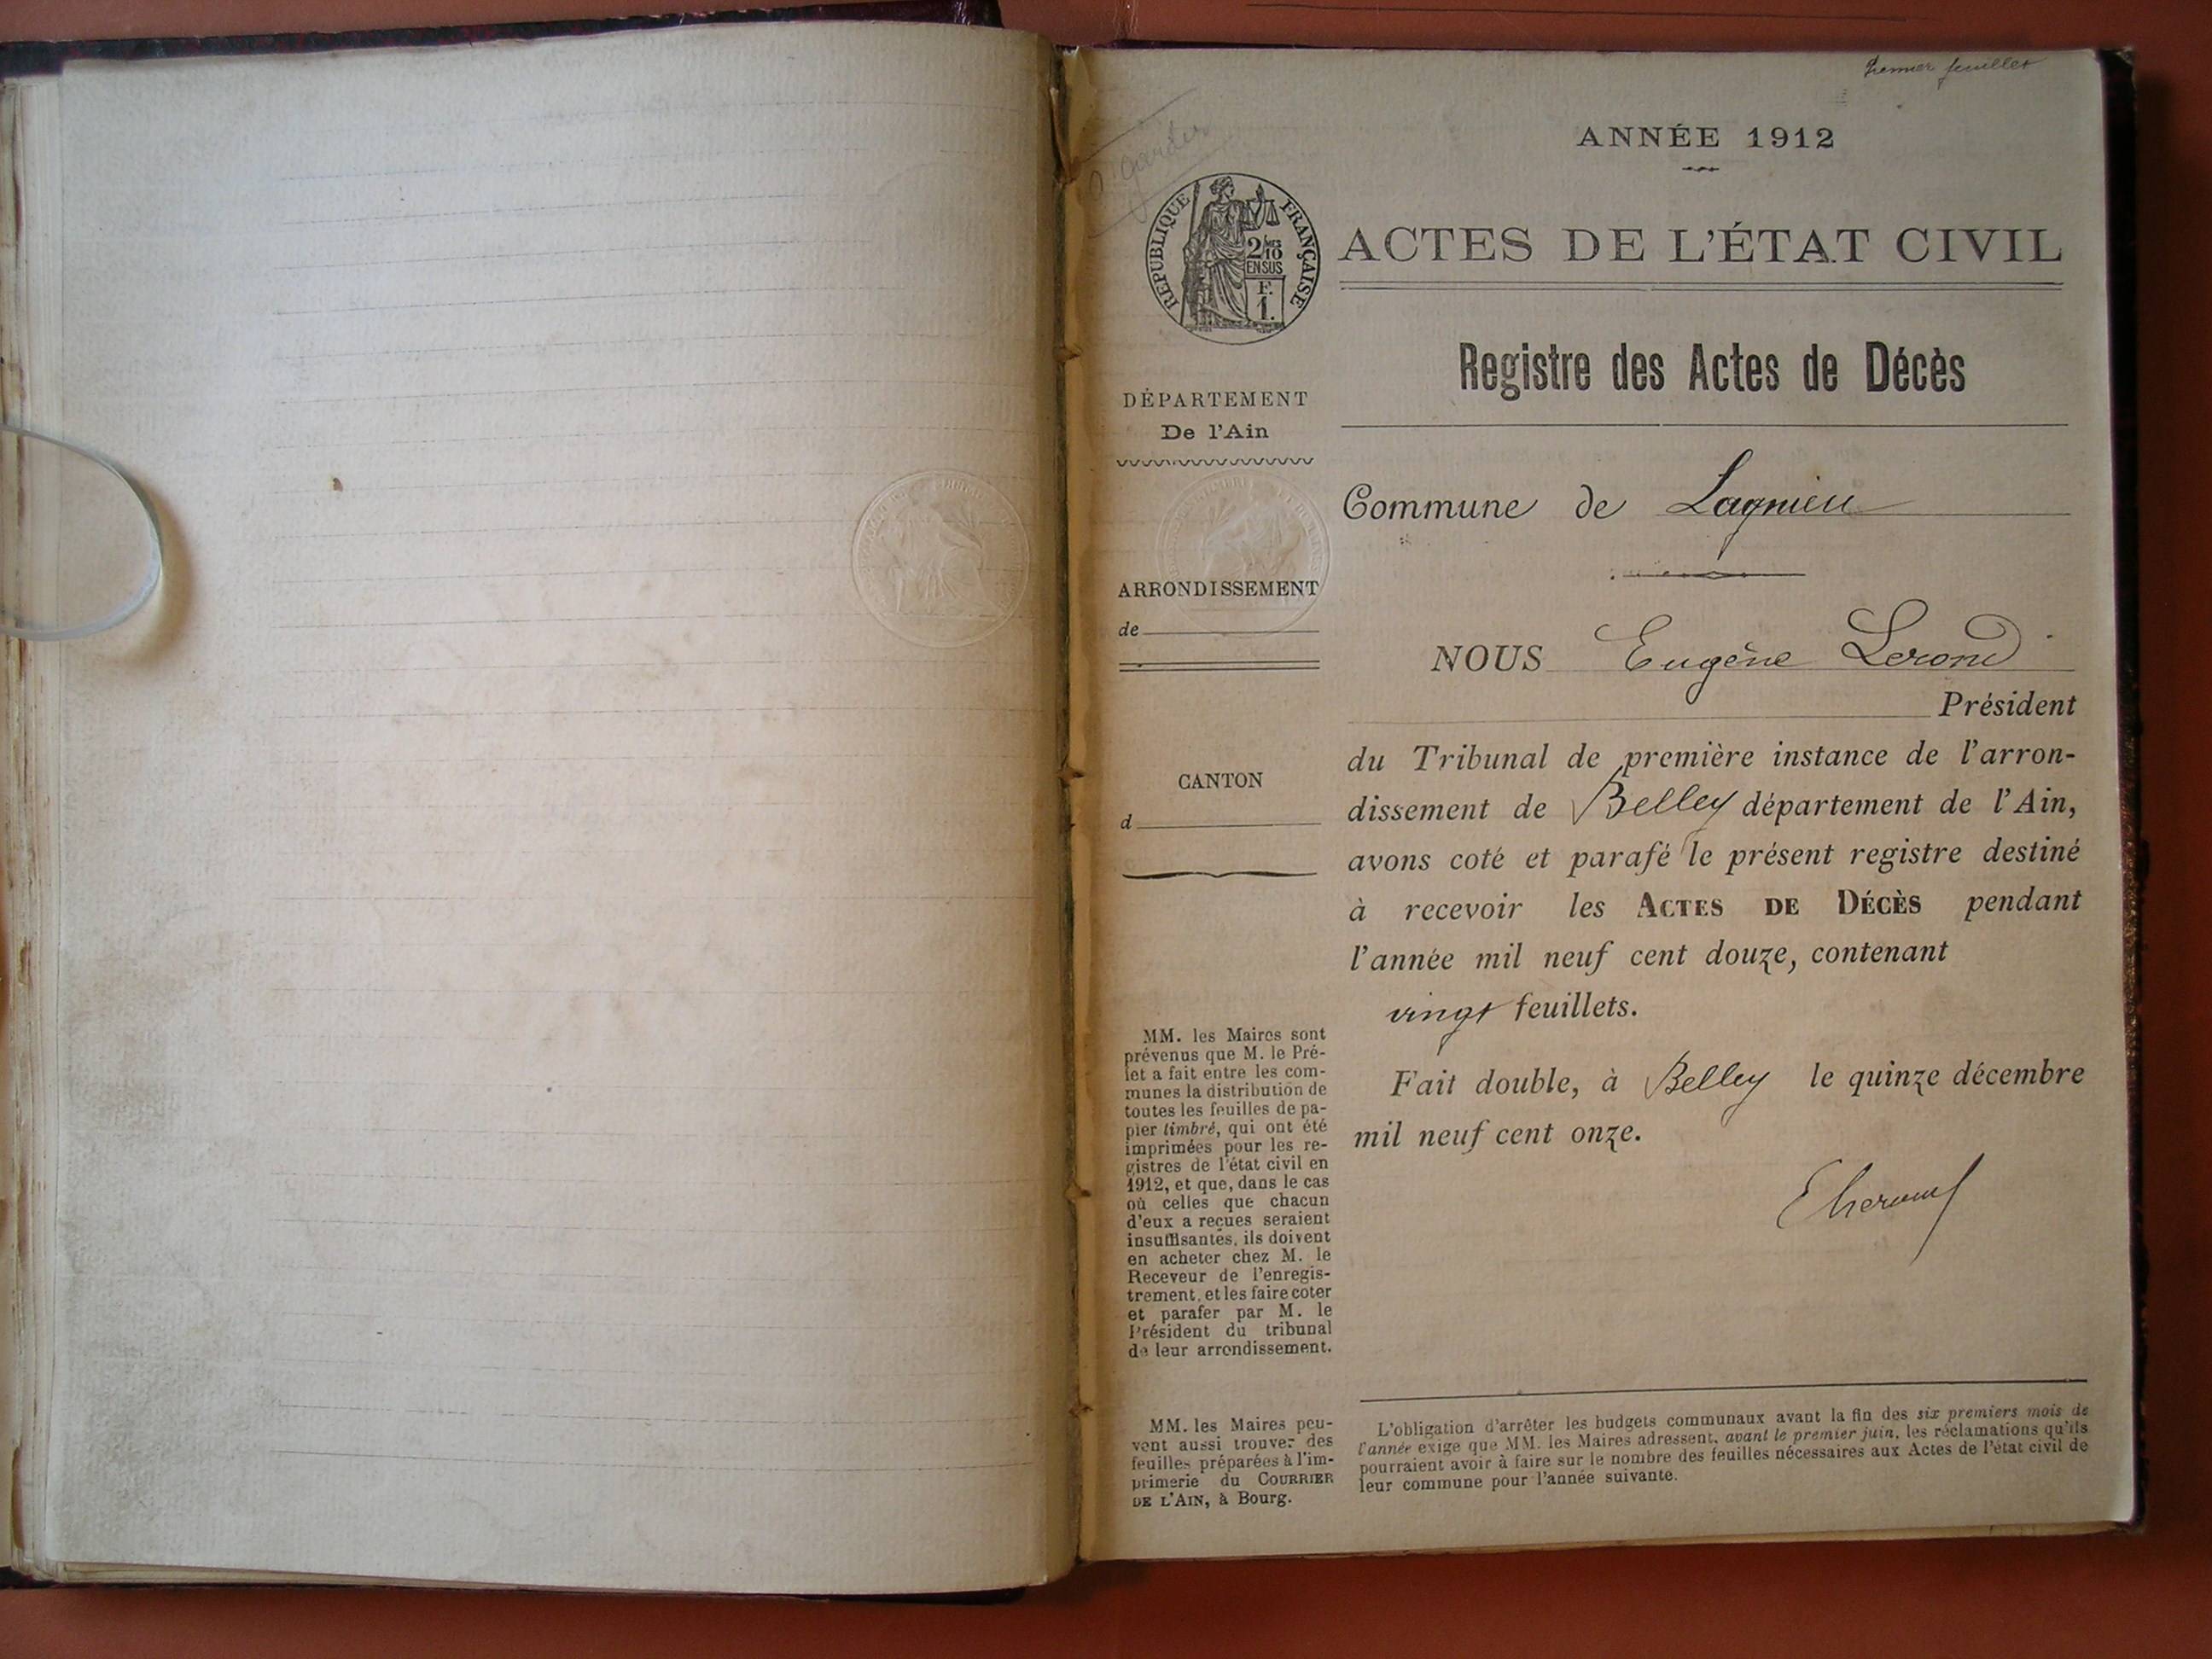 Premier feuillet
ANNÉE 1912
RÉPUBLIQUE FRANÇAISE
2/10 EN SUS
F. 1.
ACTES DE L'ÉTAT CIVIL
Registre des Actes de Décès
DÉPARTEMENT
De l'Ain
Commune de Lagnieu
ARRONDISSEMENT
de
CANTON
d
NOUS Eugène Lerond
Président
du Tribunal de première instance de l'arron-
dissement de Belley département de l'Ain,
avons coté et parafé le présent registre destiné
à recevoir les ACTES DE DÉCÈS pendant
l'année mil neuf cent douze, contenant
vingt feuillets.
Fait double, à Belley le quinze décembre
mil neuf cent onze.
MM. les Maires sont
prévenus que M. le Pré-
fet a fait entre les com-
munes la distribution de
toutes les feuilles de pa-
pier timbré, qui ont été
imprimées pour les re-
gistres de l'état civil en
1912, et que, dans le cas
où celles que chacun
d'eux a reçues seraient
insuffisantes, ils doivent
en acheter chez M. le
Receveur de l'enregis-
trement, et les faire coter
et parafer par M. le
Président du tribunal
de leur arrondissement.
MM. les Maires peu-
vent aussi trouver des
feuilles préparées à l'im-
primerie du COURRIER
DE L'AIN, à Bourg.
L'obligation d'arrêter les budgets communaux avant la fin des six premiers mois de
l'année exige que MM. les Maires adressent, avant le premier juin, les réclamations qu'ils
pourraient avoir à faire sur le nombre des feuilles nécessaires aux Actes de l'état civil de
leur commune pour l'année suivante.